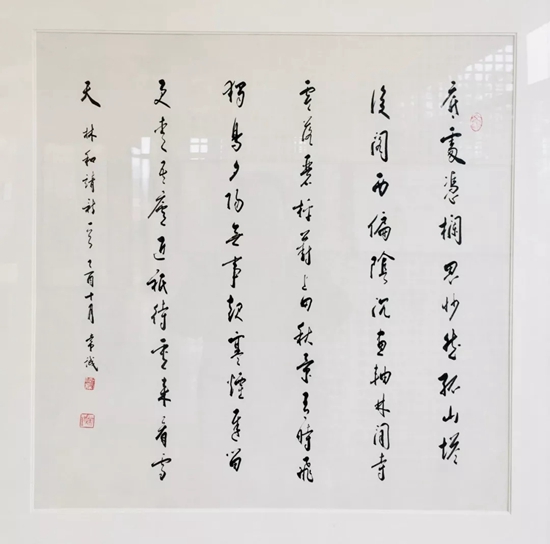 底處憑欄思眇然孤山塔
後閣西偏陰沉畫軸林間寺
零落碁枰葑上田秋景有時飛
獨鳥夕陽無事起寒煙遲留
更愛吾廬近祇待重來看雪
天 林和靖詩一首 乙酉十月